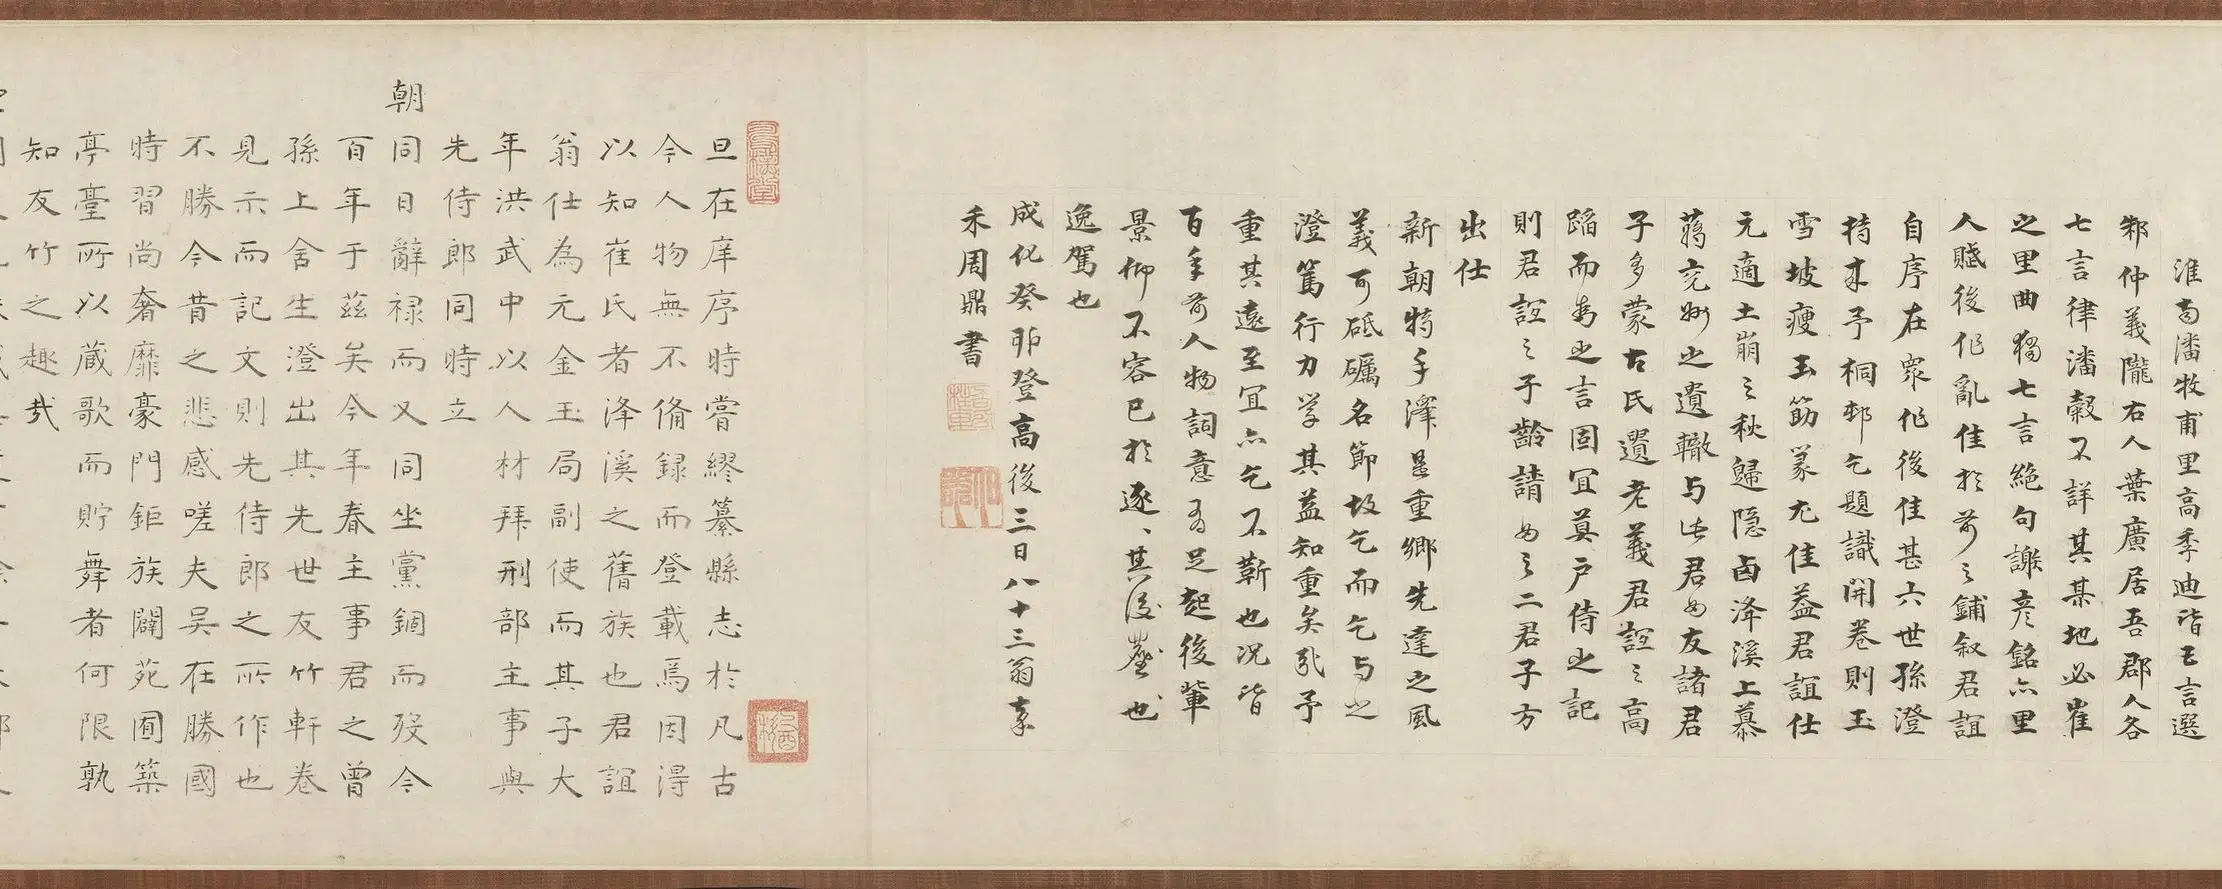 淮南潘牧甫里高季迪皆七言選
邾仲義隴右人葉廣居吾郡人各
七言律潘穀不詳其某地必崔
之里曲獨七言絕句謝彦銘亦里
人賦後作亂佳於前之鋪叙君誼
自序在衆作後佳甚六世孫澄
持来予桐邨乞題識開卷則玉
雪坡瘦玉筯篆尤佳益君誼仕
元適土崩之秋歸隐卤洚溪上慕
蒋兖州之遺轍与此君為友諸君
子多蒙古氏遺老義君誼之高
蹈而為之言固宜莫户侍之記
則君誼之子齡請為之二君子方
出仕
新朝特手澤是重鄉先達之風
義可砥礪名節故乞而乞与之
澄篤行力学其益知重矣乎予
重其遠至宜亦乞不靳也况皆
百年前人物詞意為足起後輩
景仰不容已於逐、其後塵也
逸駕也
成化癸卯登高後三日八十三翁嘉
禾周鼎書
旦在庠序時嘗繆纂縣志於凡古
今人物無不脩録而登載焉因得
以知崔氏者洚溪之舊族也君誼
翁仕為元金玉局副使而其子大
年洪武中以人材拜刑部主事與
先侍郎同時立
朝同日辭禄而又同坐黨錮而歿今
百年于兹矣今年春主事君之曾
孫上舍生澄出其先世友竹軒卷
見示而記文則先侍郎之所作也
不勝今昔之悲感嗟夫吴在勝國
時習尚奢靡豪門鉅族闢苑囿築
亭臺所以蔵歌而貯舞者何限孰
知友竹之趣哉